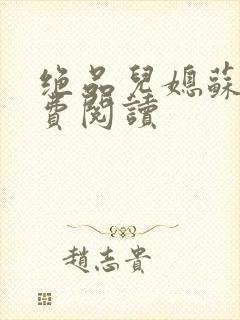 绝品兒媳蘇
費閱讀
趙志貴